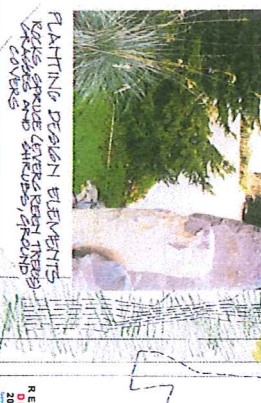 PLANTING DESIGN ELEMENTS
ROCKS SPRUCE (EVERGREEN TREES)
GRASSES AND SHRUBS/GROUND
COVERS
RE
D
20